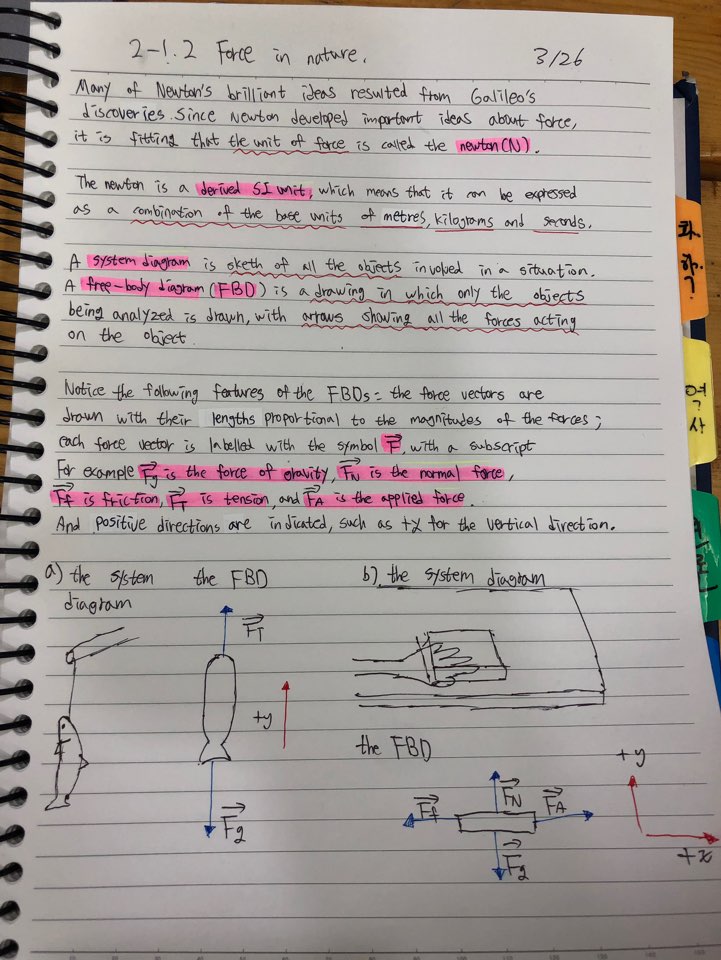 2-1.2 Force in nature. 3/26
Many of Newton's brilliant ideas resulted from Galileo's
discoveries. Since Newton developed important ideas about force,
it is fitting that the unit of force is called the newton(N).
The newton is a derived SI unit, which means that it can be expressed
as a combination of the base units of metres, kilograms and seconds.
A system diagram is sketh of all the objects involved in a situation.
A free-body diagram (FBD) is a drawing in which only the objects
being analyzed is drawn, with arrows showing all the forces acting
on the object.
Notice the following features of the FBDs = the force vectors are
drawn with their lengths proportional to the magnitudes of the forces;
each force vector is labelled with the symbol F⃗, with a subscript
For example F⃗g is the force of gravity, F⃗N is the normal force,
F⃗f is friction, F⃗T is tension, and F⃗A is the applied force.
And positive directions are indicated, such as +y for the vertical direction.
a) the system the FBD
diagram
F⃗T
+y
F⃗g
b). the system diagram
the FBD
F⃗f F⃗N F⃗A
F⃗g
+y
+x
과
하
?
역
사